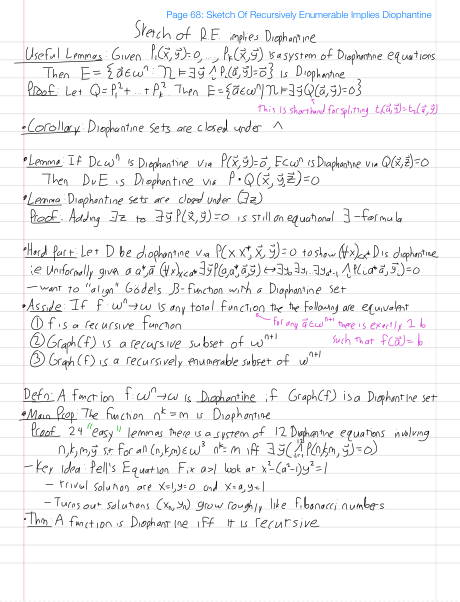 Page 68: Sketch Of Recursively Enumerable Implies Diophantine
Sketch of R.E. implies Diophantine
Useful Lemmas: Given P₁(x⃗,y⃗)=0,..., Pₖ(x⃗,y⃗) is a system of Diophantine equations
Then E = {a⃗∈ωⁿ: 𝒩 ⊨ ∃y⃗ ⋀ Pᵢ(a⃗,y⃗)=0} is Diophantine
Proof: Let Q = P₁²+...+Pₖ². Then E = {a⃗∈ωⁿ | 𝒩 ⊨ ∃y⃗ Q(a⃗,y⃗)=0}
This is shorthand for splitting t₁(a⃗,y⃗)=t₂(a⃗,y⃗)
• Corollary: Diophantine sets are closed under ∧
• Lemma: If D⊂ωⁿ is Diophantine via P(x⃗,y⃗)=0, E⊂ωⁿ is Diophantine via Q(x⃗,z⃗)=0
Then D∪E is Diophantine via P·Q(x⃗,y⃗,z⃗)=0
• Lemma: Diophantine sets are closed under (∃z)
Proof: Adding ∃z to ∃y⃗ P(x⃗,y⃗)=0 is still an equational ∃-formula
• Hard Part: Let D be diophantine via P(x,x*,x⃗,y⃗)=0 to show (∀x)<x* D is diophantine
i.e Uniformly given a a*,a⃗ (∀x)<a* ∃y⃗ P(a,a*,a⃗,y⃗) ↔ ∃y₀ ∃y₁...∃yₐ*₋₁ ⋀ P(i,a*,a⃗,yᵢ)=0
– want to "align" Gödels β-function with a Diophantine set
• Asside: If f: ωⁿ→ω is any total function the the following are equivalent
for any a⃗∈ωⁿ⁺¹ there is exactly 1 b
① f is a recursive function
such that f(a⃗)=b
② Graph(f) is a recursive subset of ωⁿ⁺¹
③ Graph(f) is a recursively enumerable subset of ωⁿ⁺¹
Defn: A function f: ωⁿ→ω is Diophantine if Graph(f) is a Diophantine set
• Main Prop: The function nᵏ=m is Diophantine
Proof 24 "easy" lemmas there is a system of 12 Diophantine equations involving
n,k,m,y⃗ s.t for all (n,k,m)∈ω³ nᵏ=m iff ∃y⃗(⋀ᵢ₌₁¹² P(n,k,m,y⃗)=0)
– Key Idea: Pell's Equation Fix a>1 look at x²-(a²-1)y²=1
– trivial solution are x=1,y=0 and x=a,y=1
– Turns out solutions (xₙ,yₙ) grow roughly like Fibonacci numbers
• Thm: A function is Diophantine iff it is recursive